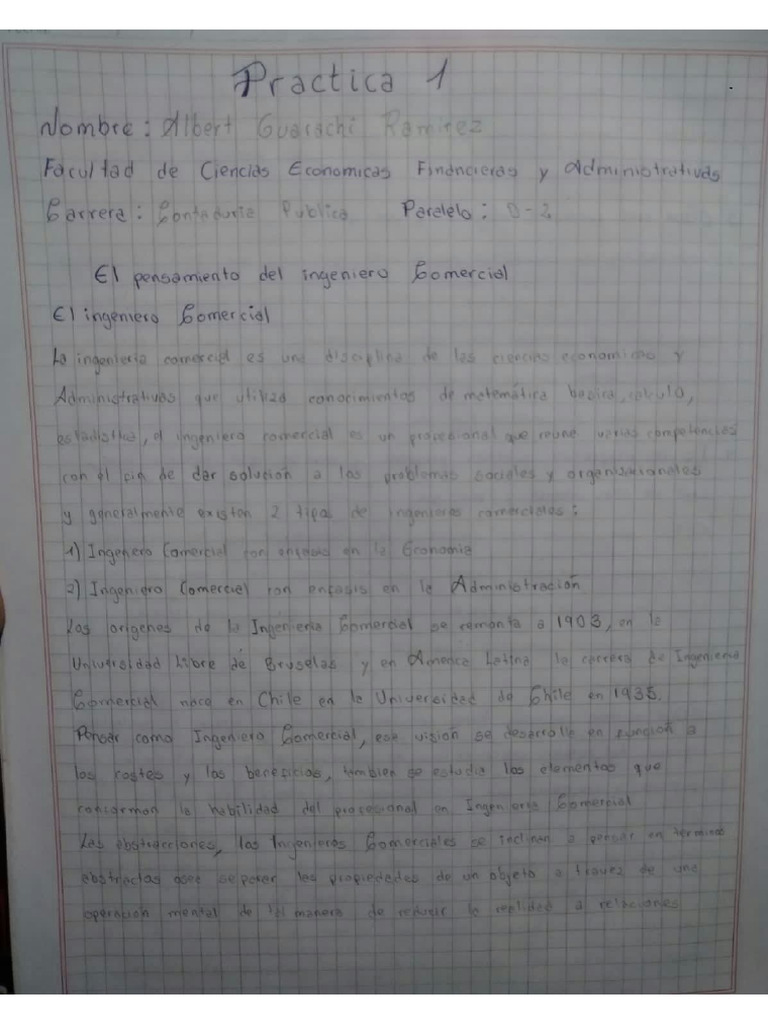 Practica 1
Nombre: Albert Guarachi Ramirez
Facultad de Ciencias Economicas Financieras y Administrativas
Carrera: Contaduria Publica Paralelo: D-2
El pensamiento del ingeniero Comercial
El ingeniero Comercial
La ingenieria comercial es una disciplina de las ciencias economicas y
Administrativas que utiliza conocimientos de matemática basica, calculo,
estadistica, el ingeniero comercial es un profecional que reune varias competencias
con el fin de dar solución a los problemas sociales y organisacionales
y generalmente existen 2 tipos de ingenieros comerciales:
1) Ingeniero Comercial con enfasis en la Economia
2) Ingeniero Comercial con enfasis en la Administración
Los origenes de la Ingenieria Comercial se remonta a 1903, en la
Universidad Libre de Bruselas y en America Latina la carrera de Ingenieria
Comercial nace en Chile en la Universidad de Chile en 1935.
Pensar como Ingeniero Comercial, esa visión se desarrolla en función a
los costos y los beneficios, tambien se estudia los elementos que
conforman la habilidad del profecional en Ingenieria Comercial
Las abstracciones, los Ingenieros Comerciales se inclinan a pensar en terminos
abstractas osea separar las propiedades de un objeto a travez de una
operación mental de tal manera de reducir la realidad a relaciones